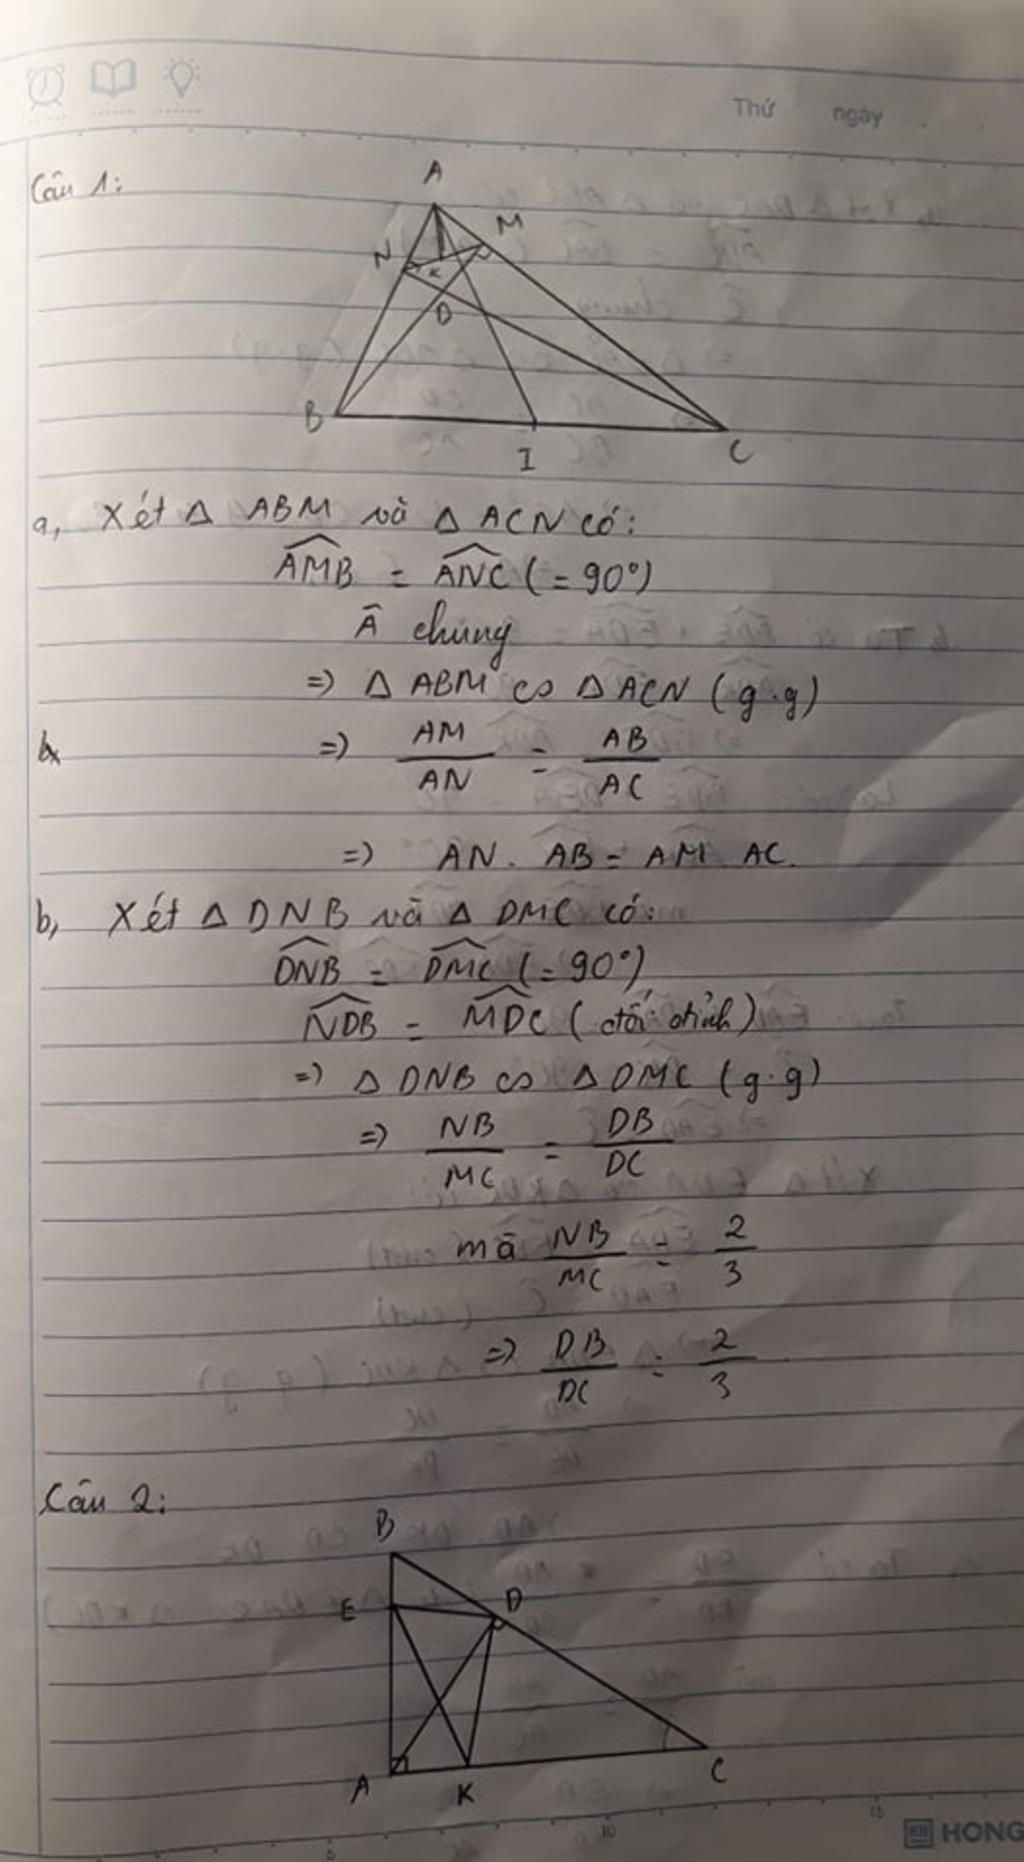 Thứ ngày
Câu 1:
A
M
N
K
D
B
I
C
a, Xét Δ ABM và Δ ACN có:
AMB = ANC (= 90°)
Â chung
=> Δ ABM ∽ Δ ACN (g.g)
=> AM/AN = AB/AC
=> AN. AB = AM AC.
b, Xét Δ DNB và Δ DMC có:
DNB = DMC (= 90°)
NDB = MDC (đối đỉnh)
=> Δ DNB ∽ Δ DMC (g.g)
=> NB/MC = DB/DC
mà NB/MC = 2/3
=> DB/DC = 2/3
Câu 2:
B
E
D
A
K
C
10
15
KH HONG